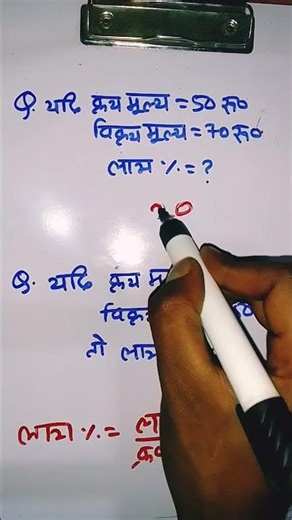 Q. यदि क्रय मूल्य = 50 रू०
विक्रय मूल्य = 70 रू०
लाभ % = ?
20
Q. यदि क्रय
तो लाभ
लाभ % =